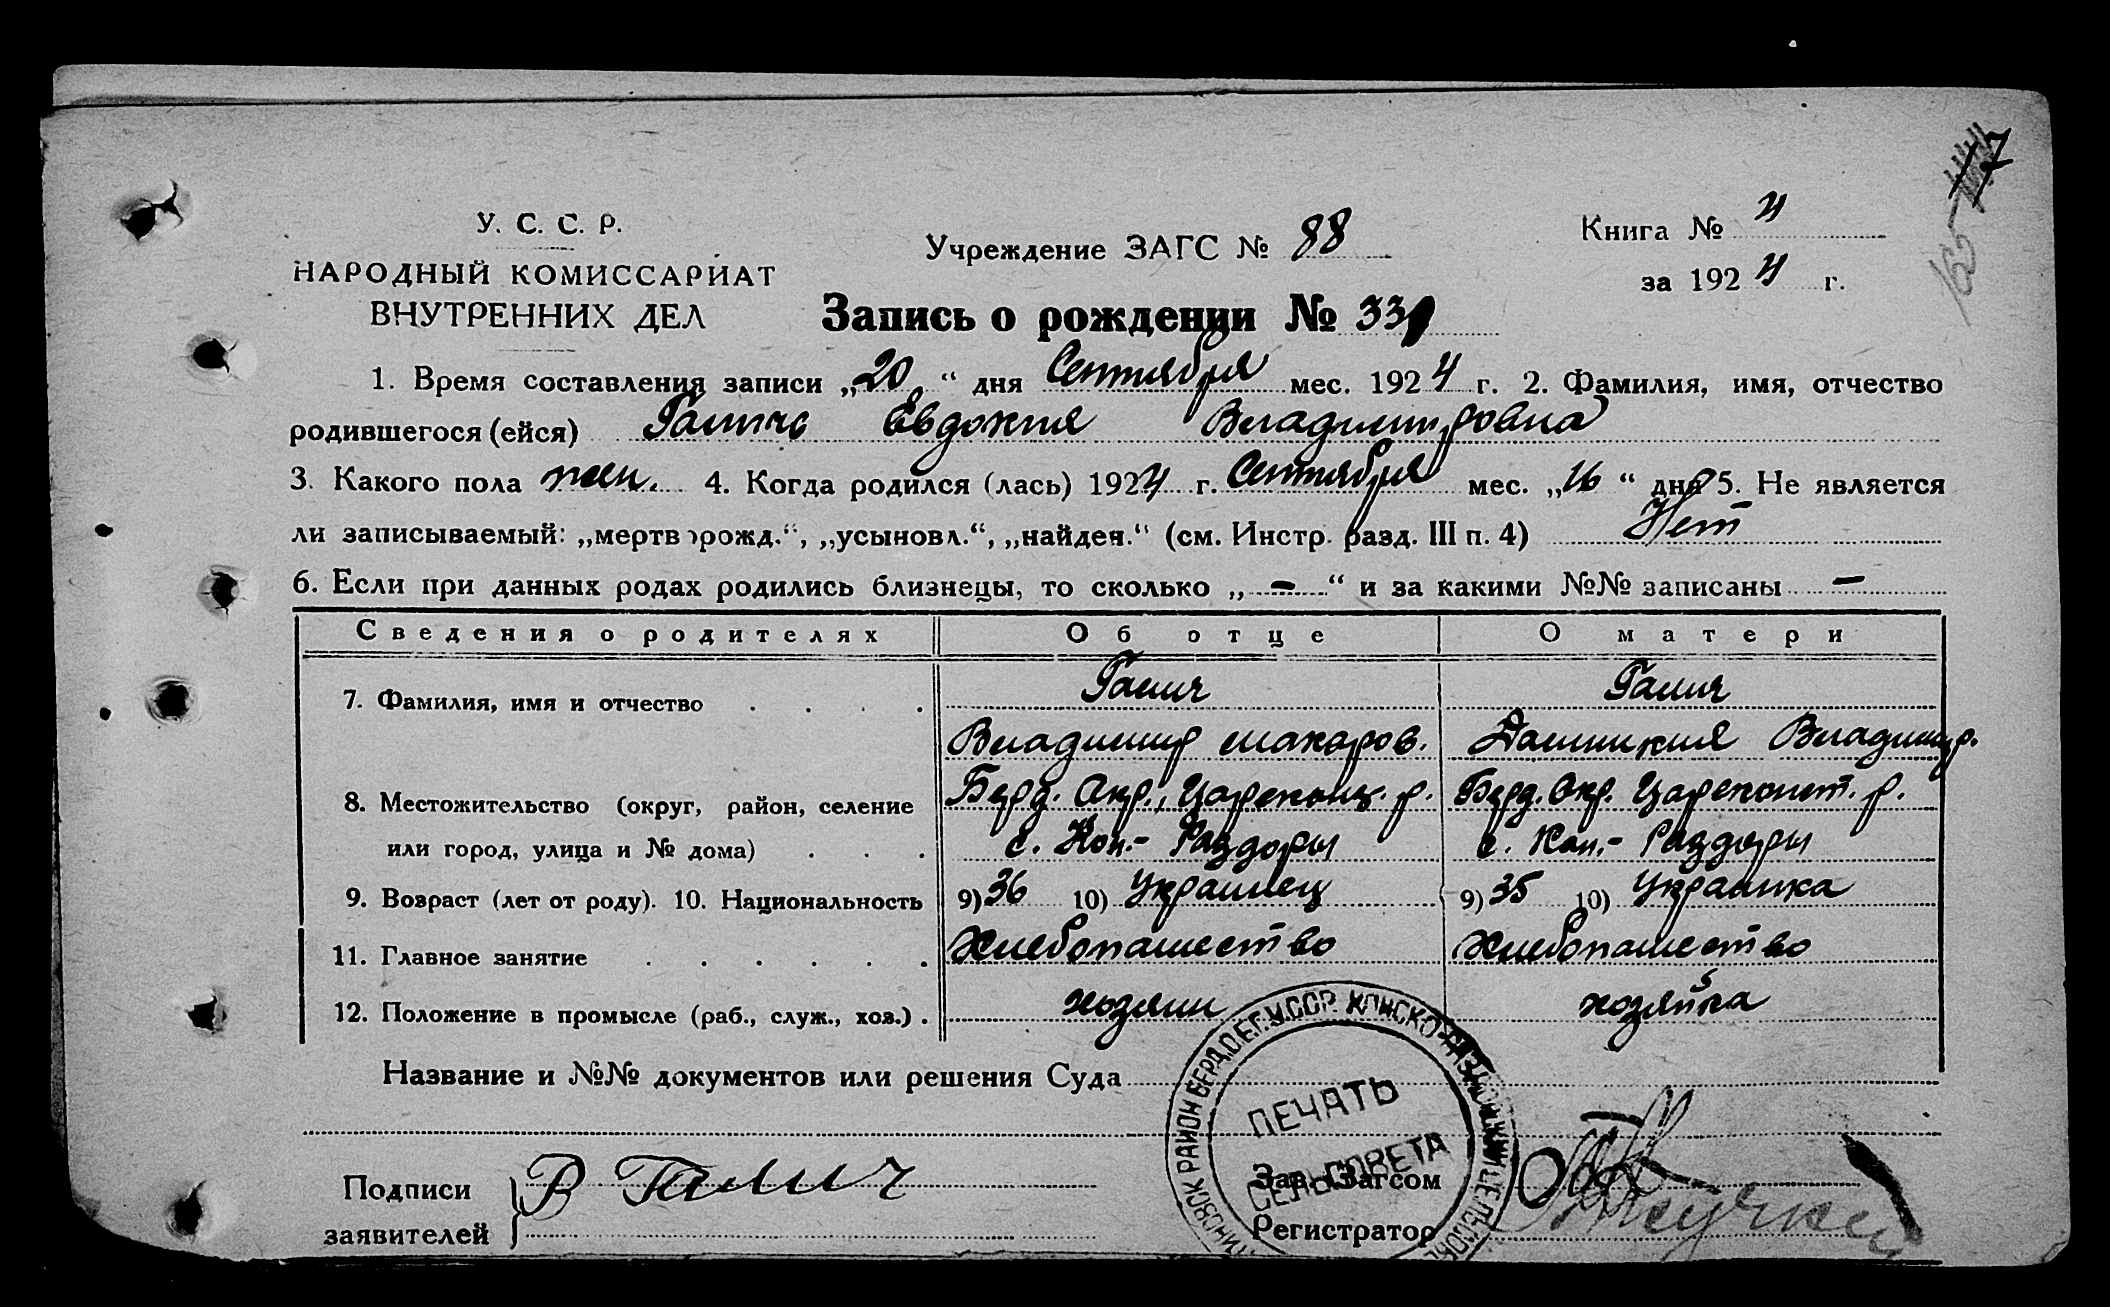 17
165
У. С. С. Р.
НАРОДНЫЙ КОМИССАРИАТ
ВНУТРЕННИХ ДЕЛ
Учреждение ЗАГС № 88
Книга № 4
за 1924 г.
Запись о рождении № 331
1. Время составления записи „20“ дня Сентября мес. 1924 г. 2. Фамилия, имя, отчество
родившегося (ейся) Галич Евдокия Владимировна
3. Какого пола жен. 4. Когда родился (лась) 1924 г. Сентября мес. „16“ дня 5. Не является
ли записываемый: „мертворожд.“, „усыновл.“, „найден.“ (см. Инстр. разд. III п. 4) Нет
6. Если при данных родах родились близнецы, то сколько „–“ и за какими №№ записаны –
Сведения о родителях Об отце О матери
7. Фамилия, имя и отчество . . . . Галич Галич
Владимир макаров. Владимир.
8. Местожительство (округ, район, селение Берд. Окр., Цареконц. р. Берд. Окр. Цареконст. р.
или город, улица и № дома) . . . с. Кон.- Раздоры с. Кон.- Раздоры
9. Возраст (лет от роду). 10. Национальность 9) 36 10) Украинец 9) 35 10) Украинка
11. Главное занятие . . . . . . Хлебопашество Хлебопашество
12. Положение в промысле (раб., служ., хоз.) . хозяин хозяйка
Название и №№ документов или решения Суда
ПЕЧАТЬ
СЕЛЬСОВЕТА
Подписи
заявителей
В Галич
Зав. Загсом
Регистратор